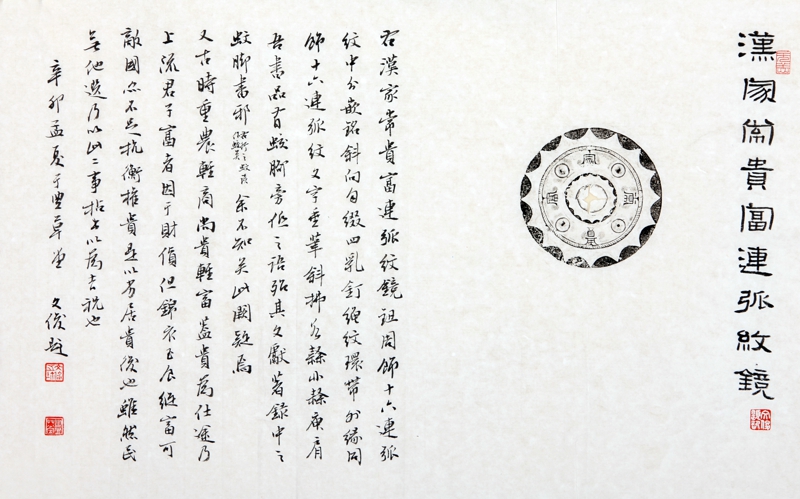 漢家常貴富連弧紋鏡
右漢家常貴富連弧紋鏡 周飾十六連弧
紋中分嵌銘斜向勻綴四乳釘 紋環帶外緣同
飾十六連弧紋文字垂華斜拂 隸小隸庾肩
吾書品有蚊腳旁低之語 其文獻著錄中之
蚊脚書邪 余不知矣此闕疑焉
又古時重農輕商尚貴輕富蓋貴為仕途乃
上流君子富者因于財值但錦衣玉食縱富可
敵國亦不足抗衡權貴是以 居貴後也雖然民
無他選乃以此二事拈出以為吉祝也
辛卯孟夏于豐草堂 文俊題